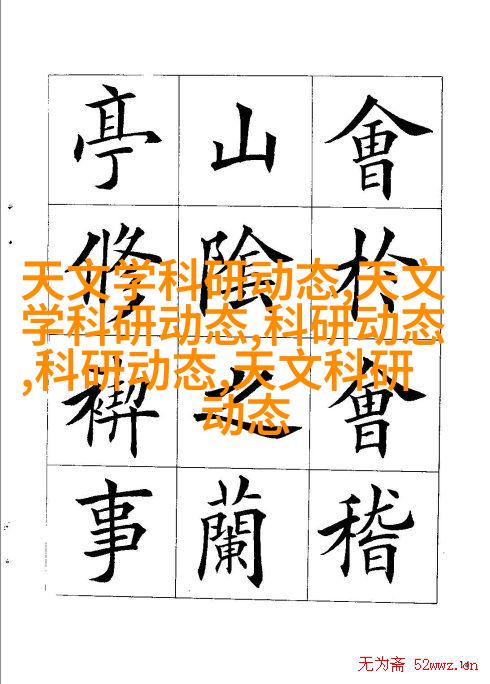 會於會稽
山陰之蘭
亭修禊事
天文学科研动态,天文
学科研动态,科研动态
,科研动态,天文科研
动态
无为斋 52wwz.cn